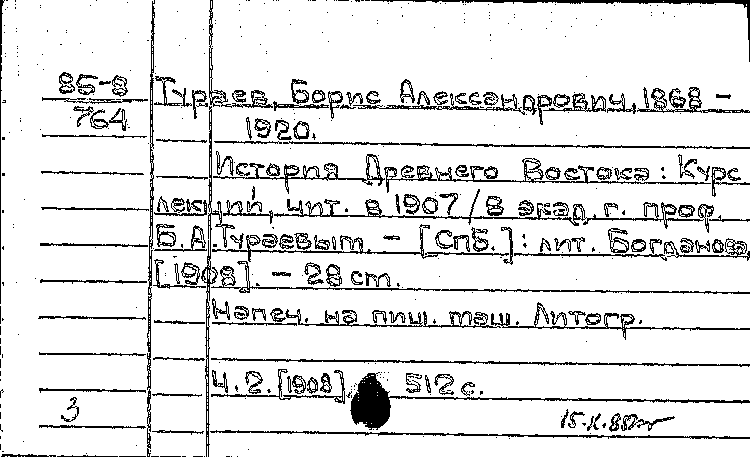 85-8
764
Тураев, Борис Александрович, 1868 –
1920.
История Древнего Востока: Курс
лекций, чит. в 1907/8 акад. г. проф.
Б.А. Тураевым. – [СПб.]: лит. Богданова,
[1908]. – 28 cm.
Напеч. на пиш. маш. Литогр.
Ч. 2. [1908] 512 с.
3